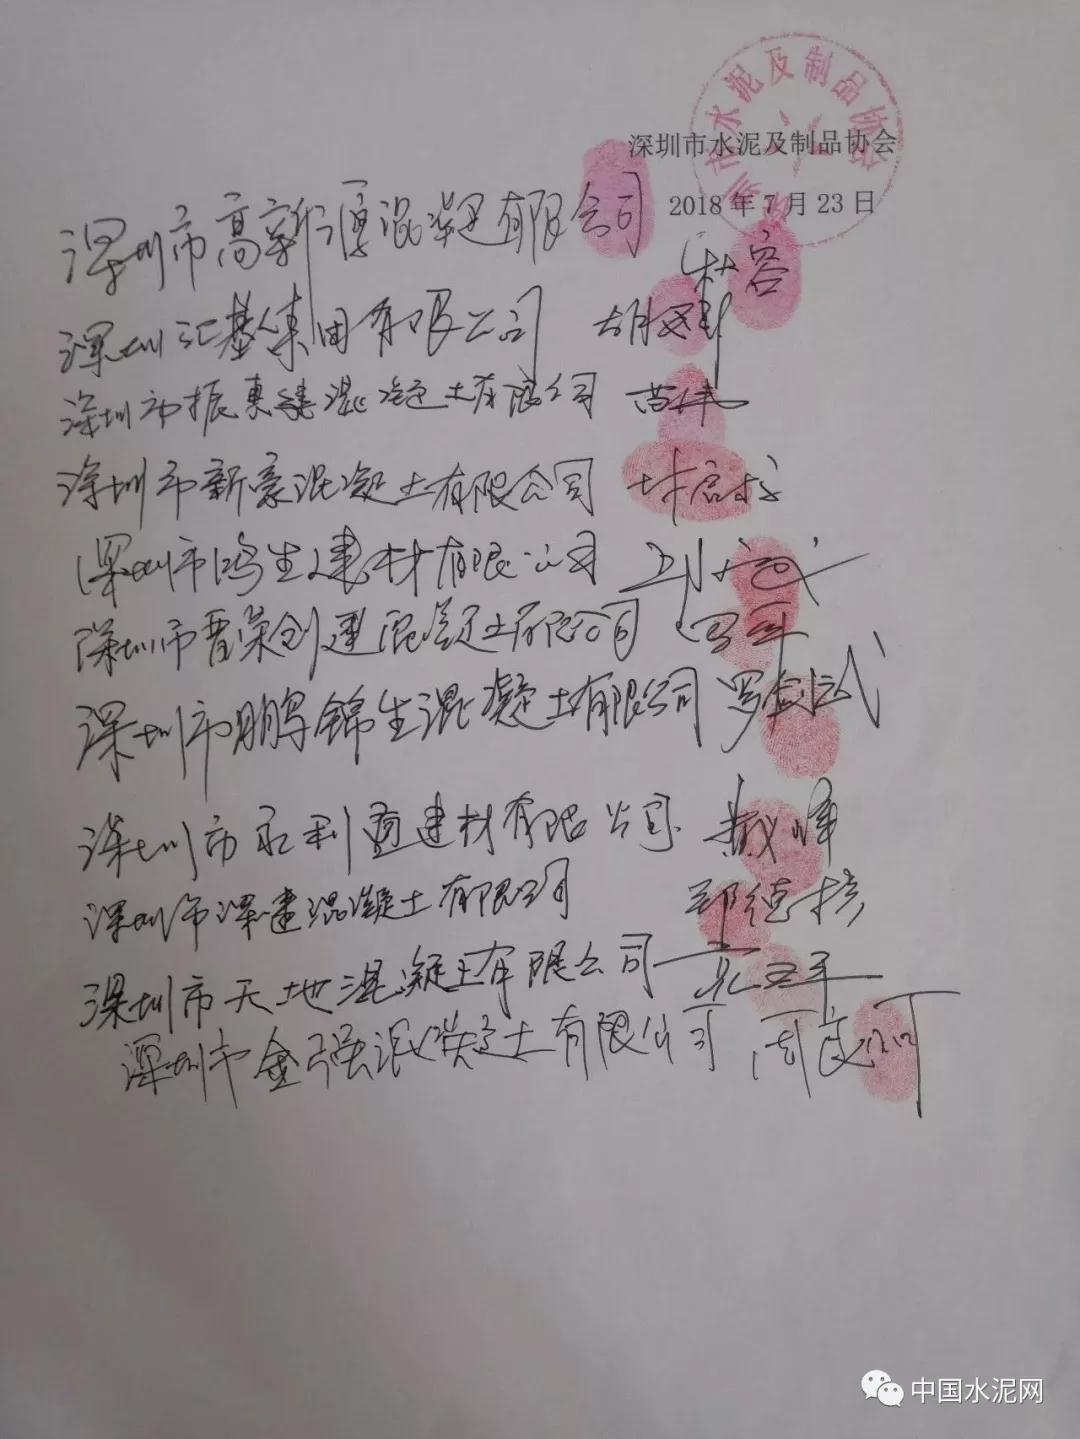 深圳市水泥及制品协会
2018年7月23日
深圳市高新 混凝 有限公司
杜容
深圳汇基集团有限公司 胡
深圳市振惠建混凝土有限公司 苗伟
深圳市新豪混凝土有限公司 林启
深圳市鸿生建材有限公司 刘
深圳市晋荣创建混凝土有限公司
深圳市鹏锦生混凝土有限公司 罗剑武
深圳市永利 建材有限公司 戴峰
深圳市深建混凝土有限公司 邓德
深圳市天地混凝土有限公司
深圳市金强混凝土有限公司 周
中国水泥网